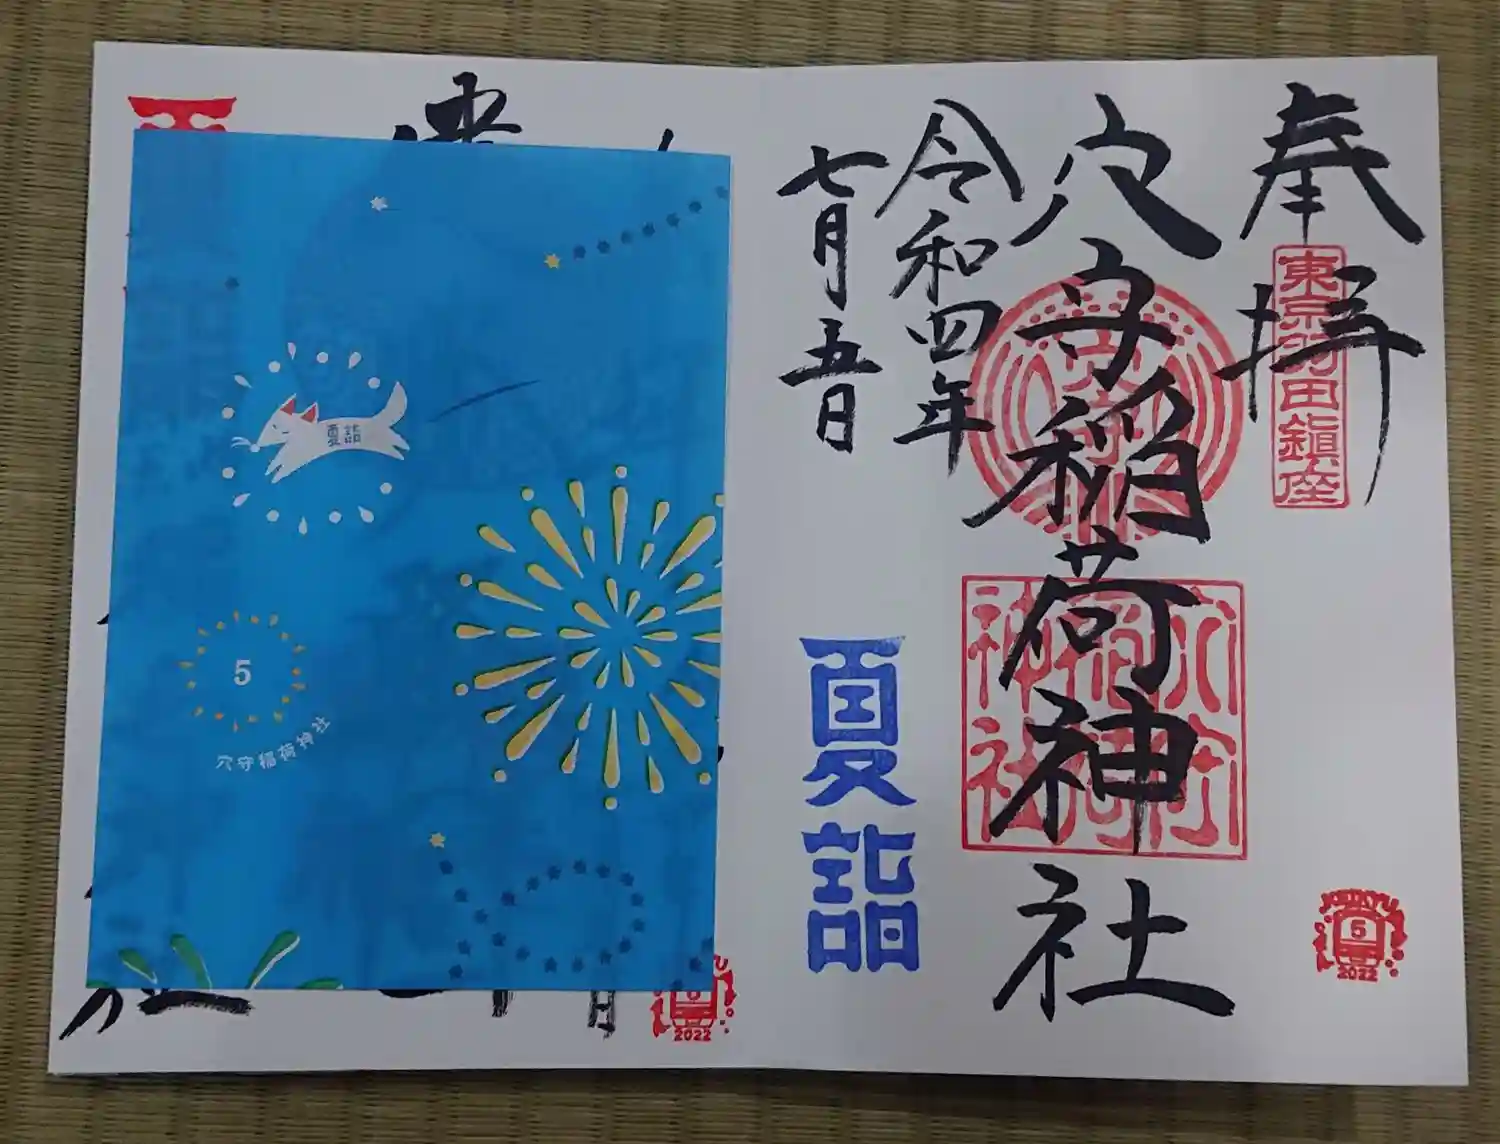 奉拝
東京羽田鎮座
穴守稲荷神社
令和四年
七月五日
夏詣
5
2022
夏詣
5
穴守稲荷神社
2022